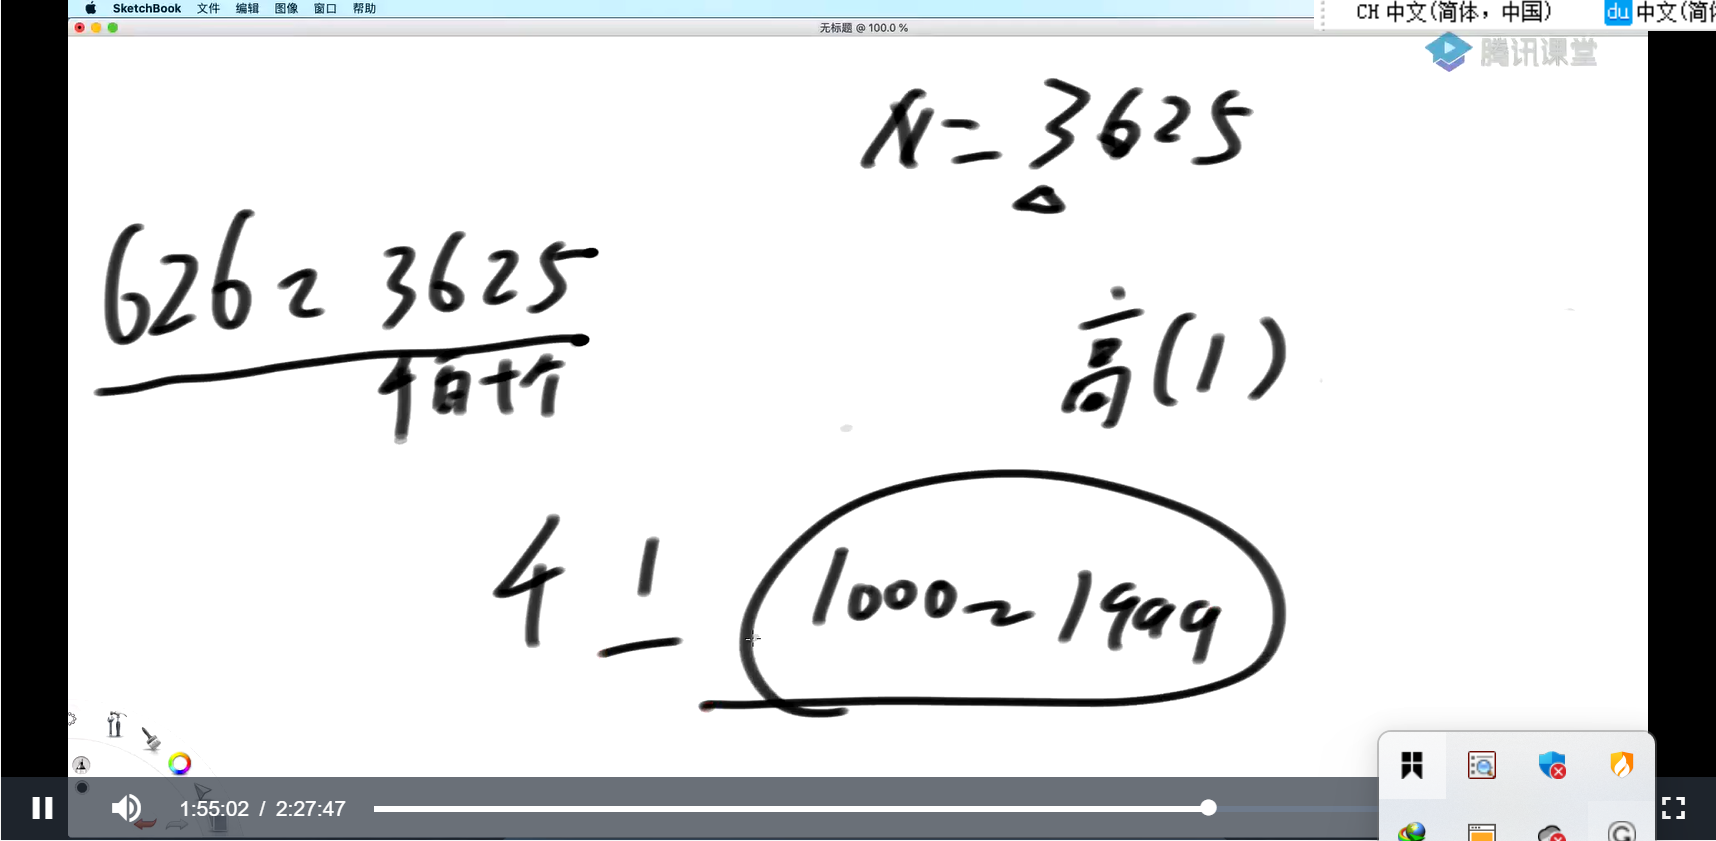 SketchBook 文件 编辑 图像 窗口 帮助
CH 中文(简体，中国) du 中文(简体
无标题 @ 100.0 %
腾讯课堂
N = 3625
626 ~ 3625
千百十个
高(1)
4 1 1000~1999
1:55:02 / 2:27:47